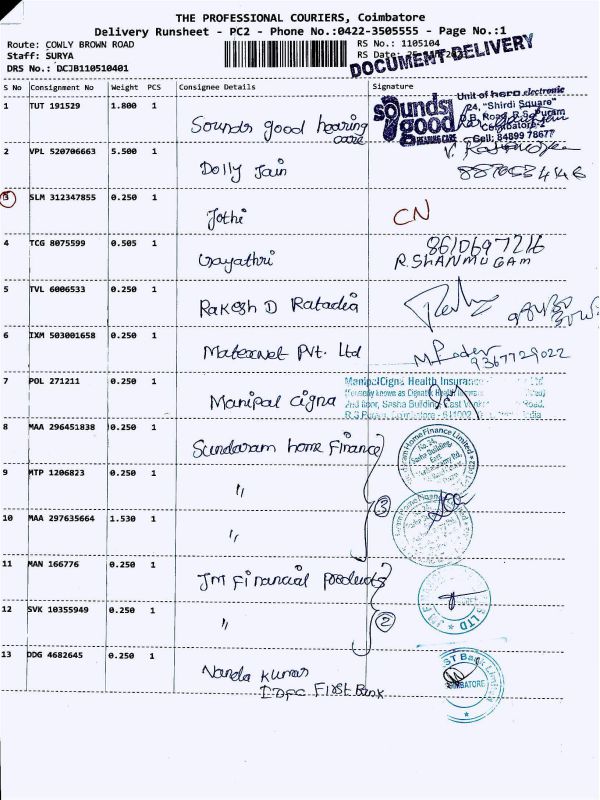 THE PROFESSIONAL COURIERS, Coimbatore
Delivery Runsheet - PC2 - Phone No.:0422-3505555 - Page No.:1
Route: COWLY BROWN ROAD RS No.: 1105104
Staff: SURYA RS Date:
DRS No.: DCJB110510401 DOCUMENT DELIVERY
S No Consignment No Weight PCS Consignee Details Signature
1 TUT 191529 1.800 1 Sounds good hearing care
sounds good HEARING CARE
Unit of hero electronic
24, "Shirdi Square"
D.B. Road, R.S. Puram
Coimbatore-2
Cell: 84899 78677
2 VPL 520706663 5.500 1 Dolly Jain
3 SLM 312347855 0.250 1 Jothi CN
4 TCG 8075599 0.505 1 Gayathri 8610697216
R. SHANMUGAM
5 TVL 6006533 0.250 1 Rakesh D Ratadia
6 IXM 503001658 0.250 1 Maternet Pvt. Ltd 9367729022
7 POL 271211 0.250 1 Manipal cigna
ManipalCigna Health Insurance Ltd
(formerly known as Cigna
2nd floor, Sasha Building, East Road,
R.S Puram, Coimbatore - 641002, India
8 MAA 296451838 0.250 1 Sundaram home Finance
9 MTP 1206823 0.250 1 "
3
10 MAA 297635664 1.530 1 "
11 MAN 166776 0.250 1 JM Financial products
12 SVK 10355949 0.250 1 "
2
13 DDG 4682645 0.250 1 Nanda Kumar
IDFC First Bank